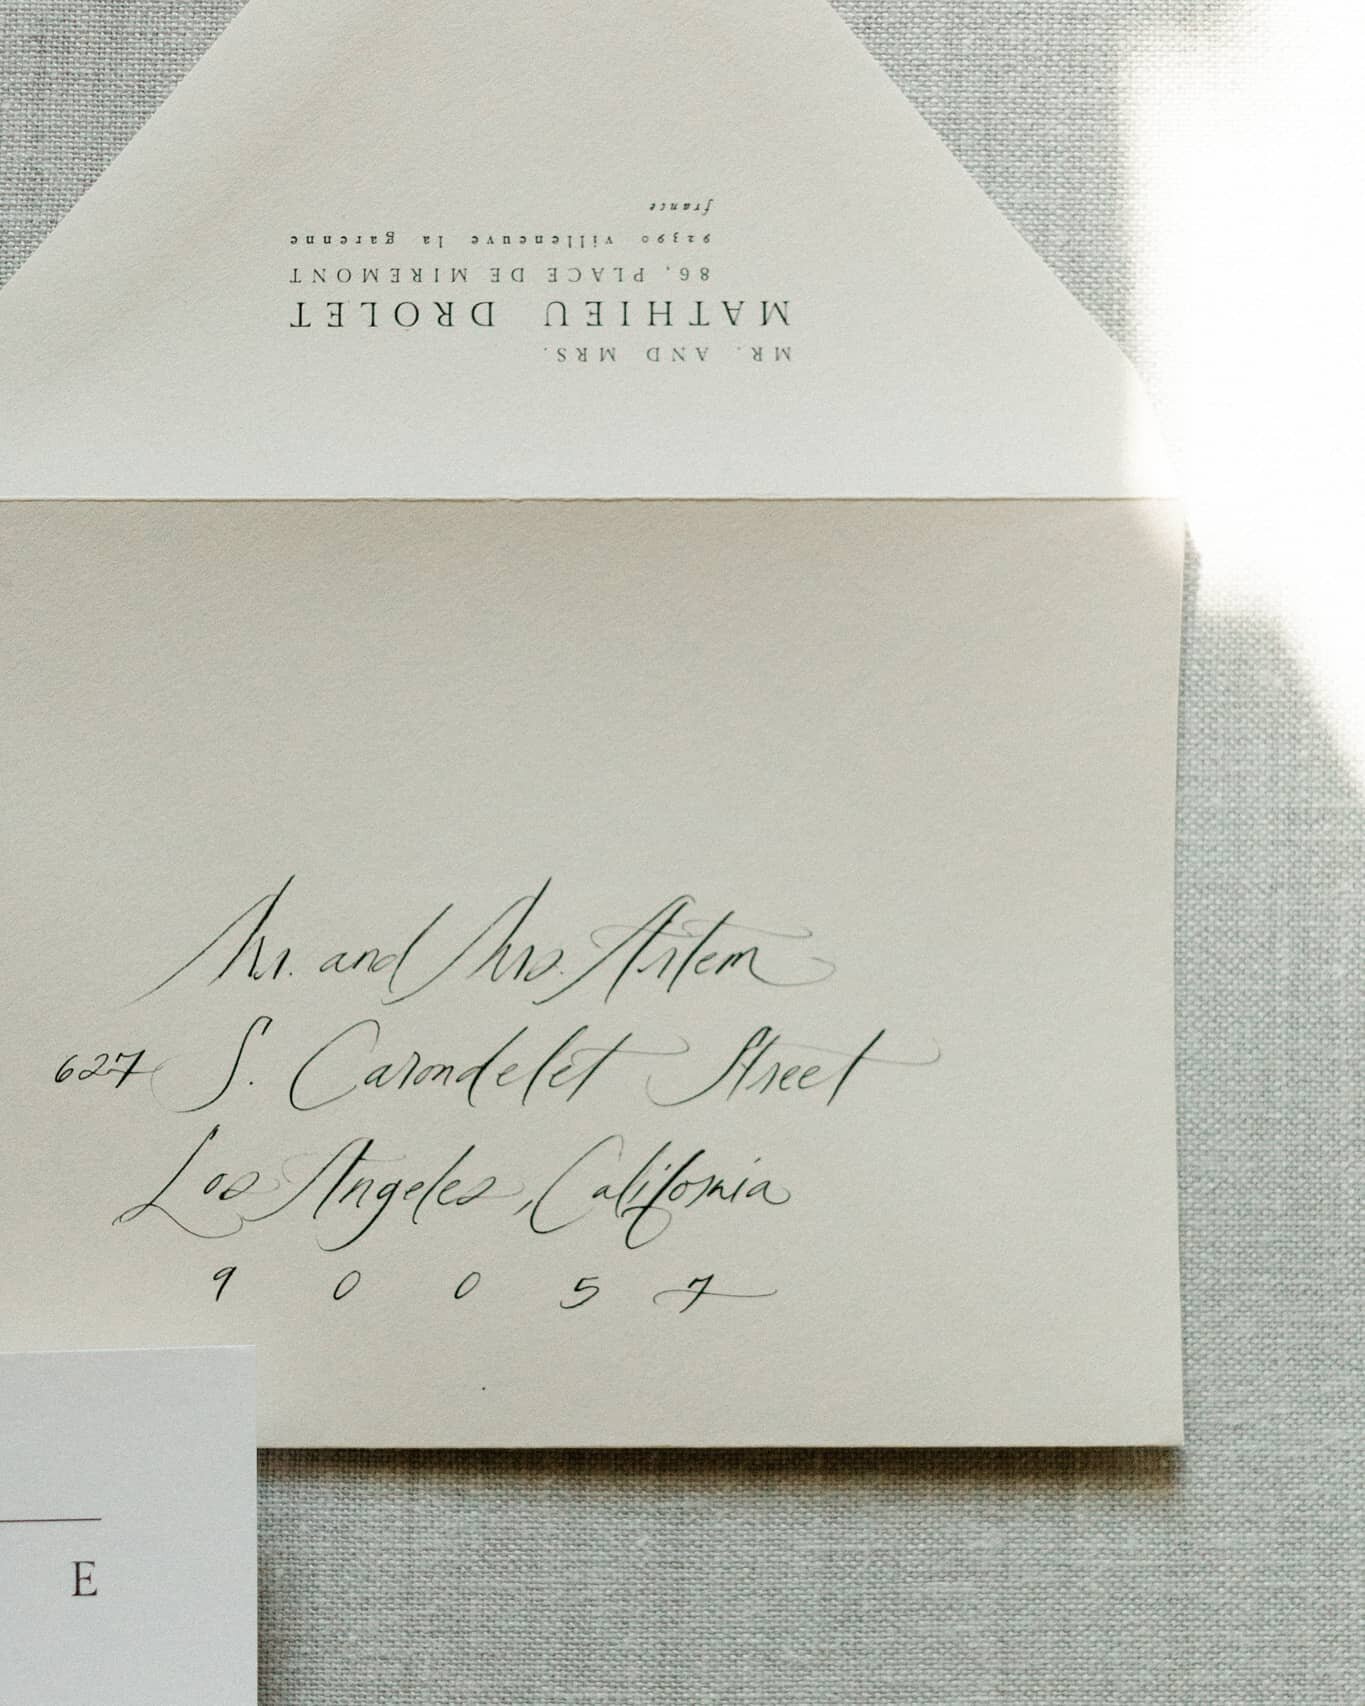 MR. AND MRS.
MATHIEU DROLET
86, PLACE DE MIREMONT
92390 villeneuve la garenne
france
Mr. and Mrs. Artem
627 S. Carondelet Street
Los Angeles, California
90057
E